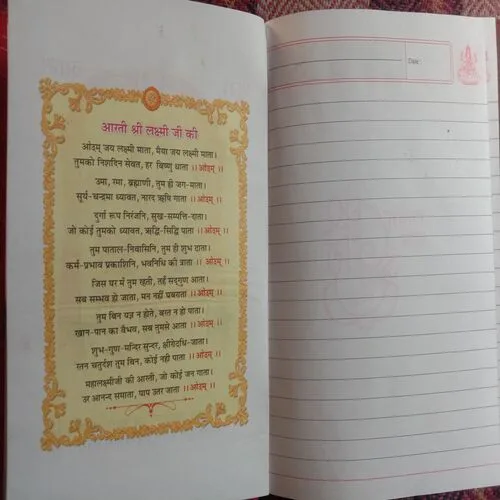 आरती श्री लक्ष्मी जी की
ओ३म् जय लक्ष्मी माता, मैया जय लक्ष्मी माता।
तुमको निशदिन सेवत, हर विष्णु धाता ।।ओ३म् ।।
उमा, रमा, ब्रह्माणी, तुम ही जग-माता।
सूर्य-चन्द्रमा ध्यावत, नारद ऋषि गाता ।।ओ३म् ।।
दुर्गा रूप निरंजनि, सुख-सम्पत्ति-दाता।
जो कोई तुमको ध्यावत, ऋद्धि-सिद्धि पाता ।।ओ३म् ।।
तुम पाताल-निवासिनि, तुम ही शुभ दाता।
कर्म-प्रभाव प्रकाशिनि, भवनिधि की त्राता ।।ओ३म् ।।
जिस घर में तुम रहती, तहँ सद्‌गुण आता।
सब सम्भव हो जाता, मन नहीं घबराता ।।ओ३म् ।।
तुम बिन यज्ञ न होते, वस्त्र न हो पाता।
खान-पान का वैभव, सब तुमसे आता ।।ओ३म् ।।
शुभ-गुण-मन्दिर सुन्दर, क्षीरोदधि-जाता।
रतन चतुर्दश तुम बिन, कोई नही पाता ।।ओ३म् ।।
महालक्ष्मीजी की आरती, जो कोई जन गाता।
उर आनन्द समाता, पाप उतर जाता ।।ओ३म् ।।
Date: